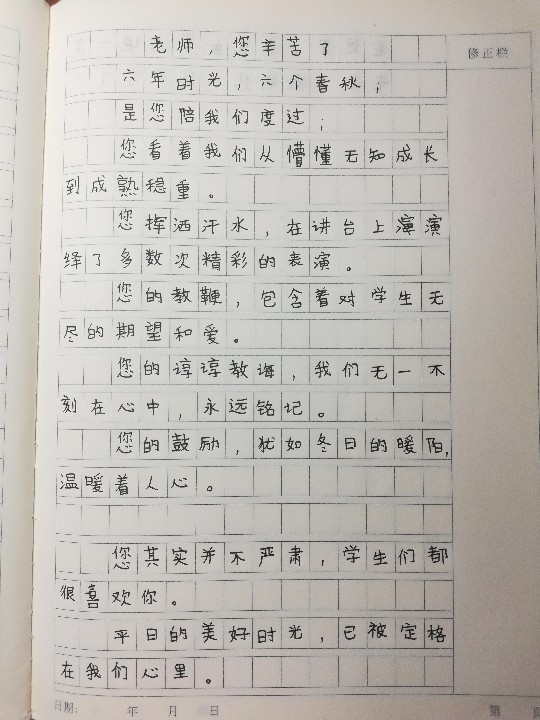 老师，您辛苦了
修正栏
六年时光，六个春秋，
是您陪我们度过；
您看着我们从懵懂无知成长
到成熟稳重。
您挥洒汗水，在讲台上演演
绎了多数次精彩的表演。
您的教鞭，包含着对学生无
尽的期望和爱。
您的谆谆教诲，我们无一不
刻在心中，永远铭记。
您的鼓励，犹如冬日的暖阳，
温暖着人心。
您其实并不严肃，学生们都
很喜欢你。
平日的美好时光，已被定格
在我们心里。
日期： 年 月 日 第 页